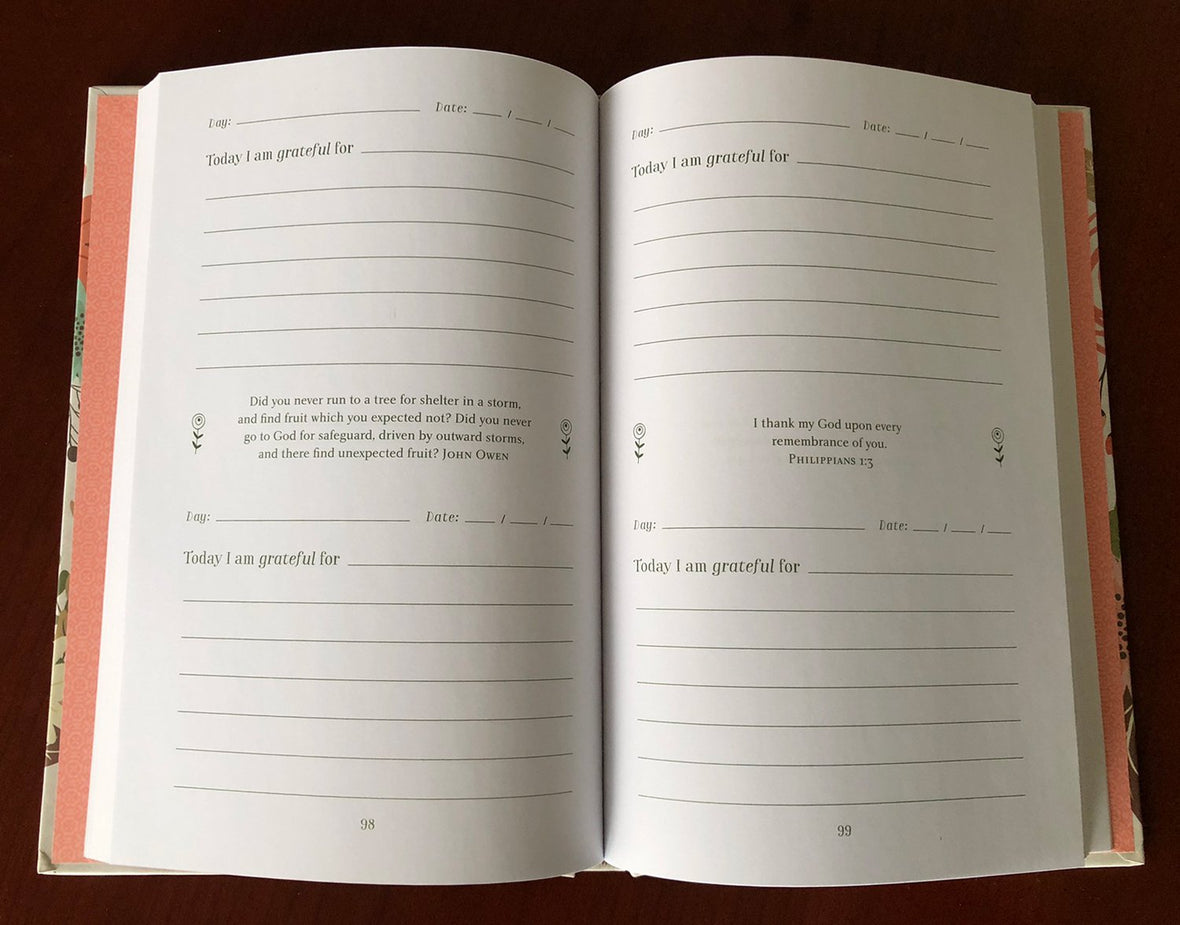 Day: Date: / /
Today I am grateful for
Did you never run to a tree for shelter in a storm,
and find fruit which you expected not? Did you never
go to God for safeguard, driven by outward storms,
and there find unexpected fruit? John Owen
Day: Date: / /
Today I am grateful for
98
Day: Date: / /
Today I am grateful for
I thank my God upon every
remembrance of you.
Philippians 1:3
Day: Date: / /
Today I am grateful for
99